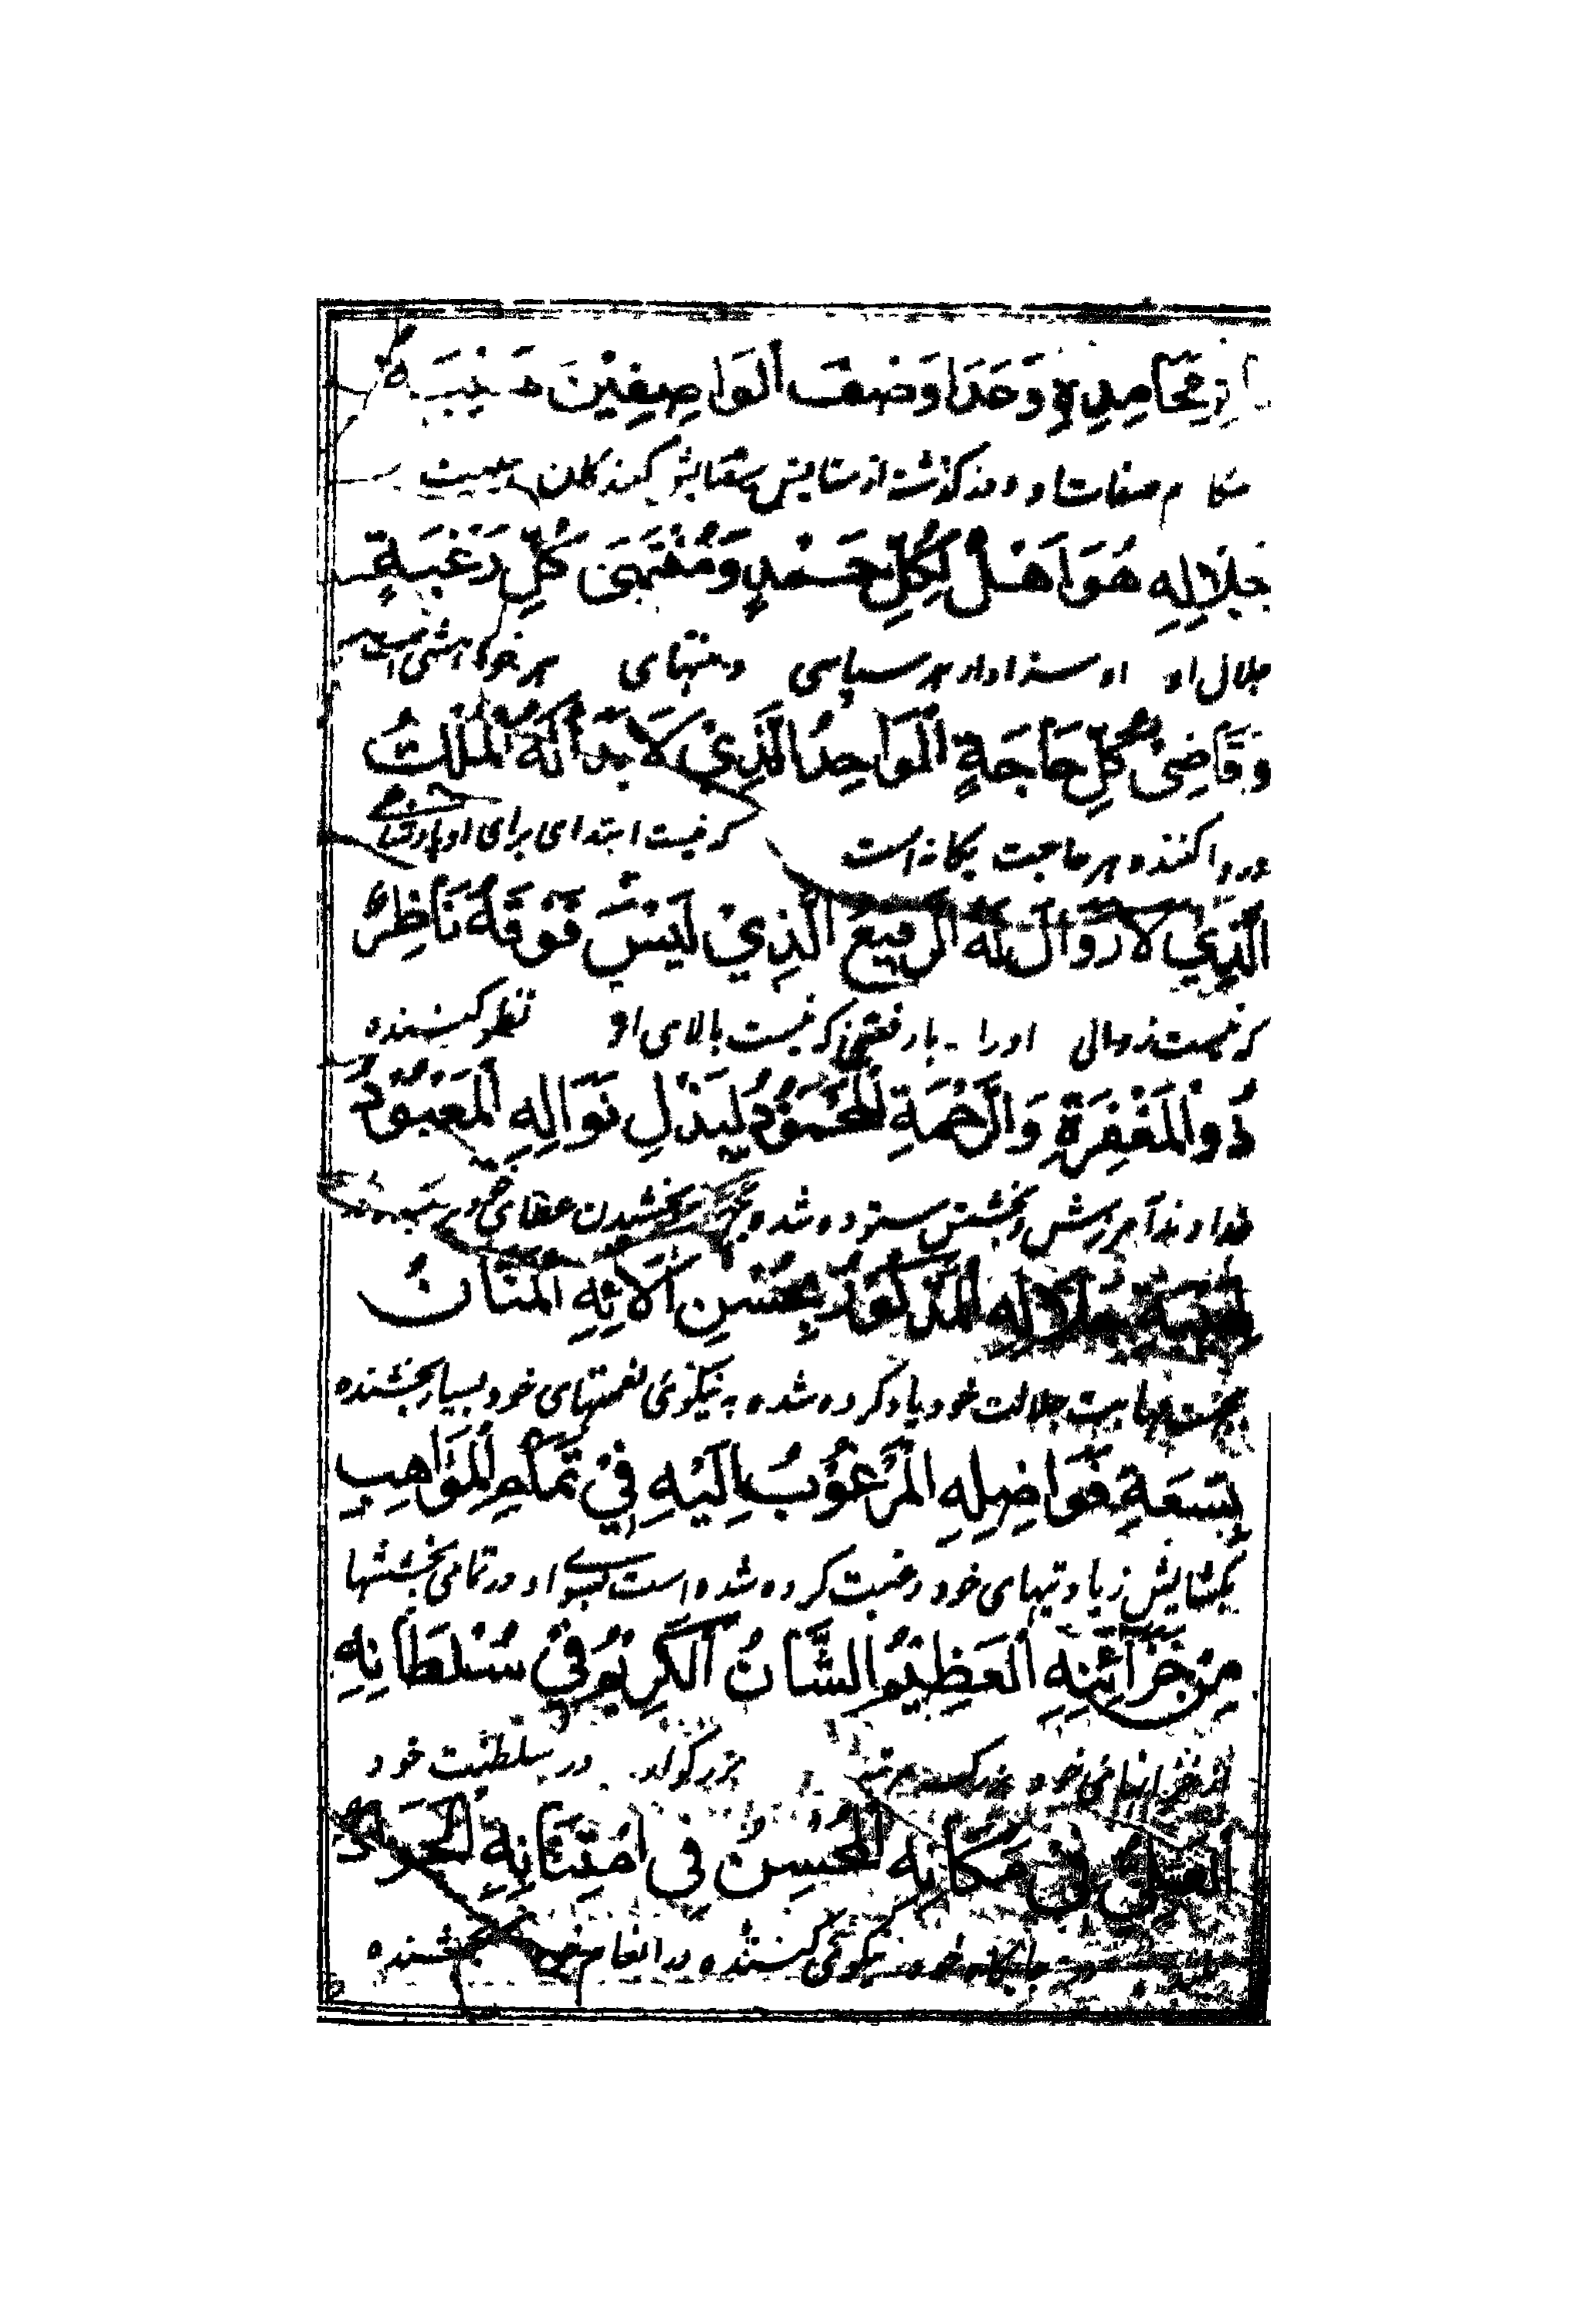 مَحَامِدِهِ وَعَدَا وَصْفَ الْوَاصِفِيْنَ هَيْبَةُ
صفات او و درگذشت از ستایش ستایش کنندگان هیبت
جَلَالِهِ هُوَ اَهْلٌ لِكُلِّ حَمْدٍ وَمُنْتَهَى كُلِّ رَغْبَةٍ
جلال او او سزاوار هر سپاسی و منتهای هر خواهشی است
وَقَاضِیْ كُلِّ حَاجَةٍ اَلْوَاحِدُ الَّذِيْ لَا بَدْأَ لَهُ الْمَلِكُ
و روا کننده هر حاجت یگانه است که نیست ابتدای برای او
الَّذِي لَا زَوَالَ لَهُ الرَّفِيعُ الَّذِيْ لَيْسَ فَوْقَهُ نَاظِرٌ
که نیست زوالی اورا که نیست بالای او نظر کننده
ذُو الْمَغْفِرَةِ وَالرَّحْمَةِ الْمَحْمُوْدُ لِبَذْلِ نَوَالِهِ الْمَعْبُوْدُ
خداوند آمرزش و بخشش ستوده شده بخشیدن عطای خود
لِهَيْبَةِ جَلَالِهِ الْمَذْكُوْرُ بِحُسْنِ اٰلَائِهِ الْمَنَّانُ
بجهت مهابت جلالت خود یاد کرده شده به نیکوئی نعمتهای خود بسیار بخشنده
بِسَعَةِ فَوَاضِلِهِ الْمَرْغُوْبُ اِلَيْهِ فِيْ تَمَامِ الْمَوَاهِبِ
بگشایش زیادتیهای خود رغبت کرده شده است بسوے او در تمامی بخششها
مِنْ خَزَآئِنِهِ الْعَظِيْمُ الشَّانُ الْكَرِيْمُ فِيْ سُلْطَانِهِ
از خزانهای خود بزرگ در سلطنت خود
الْعَلِيُّ فِيْ مَكَانِهِ الْمُحْسِنُ فِي امْتِنَانِهِ الْجَوَادُ
جایگاه خود نیکوئی کننده در انعام خود بخشنده